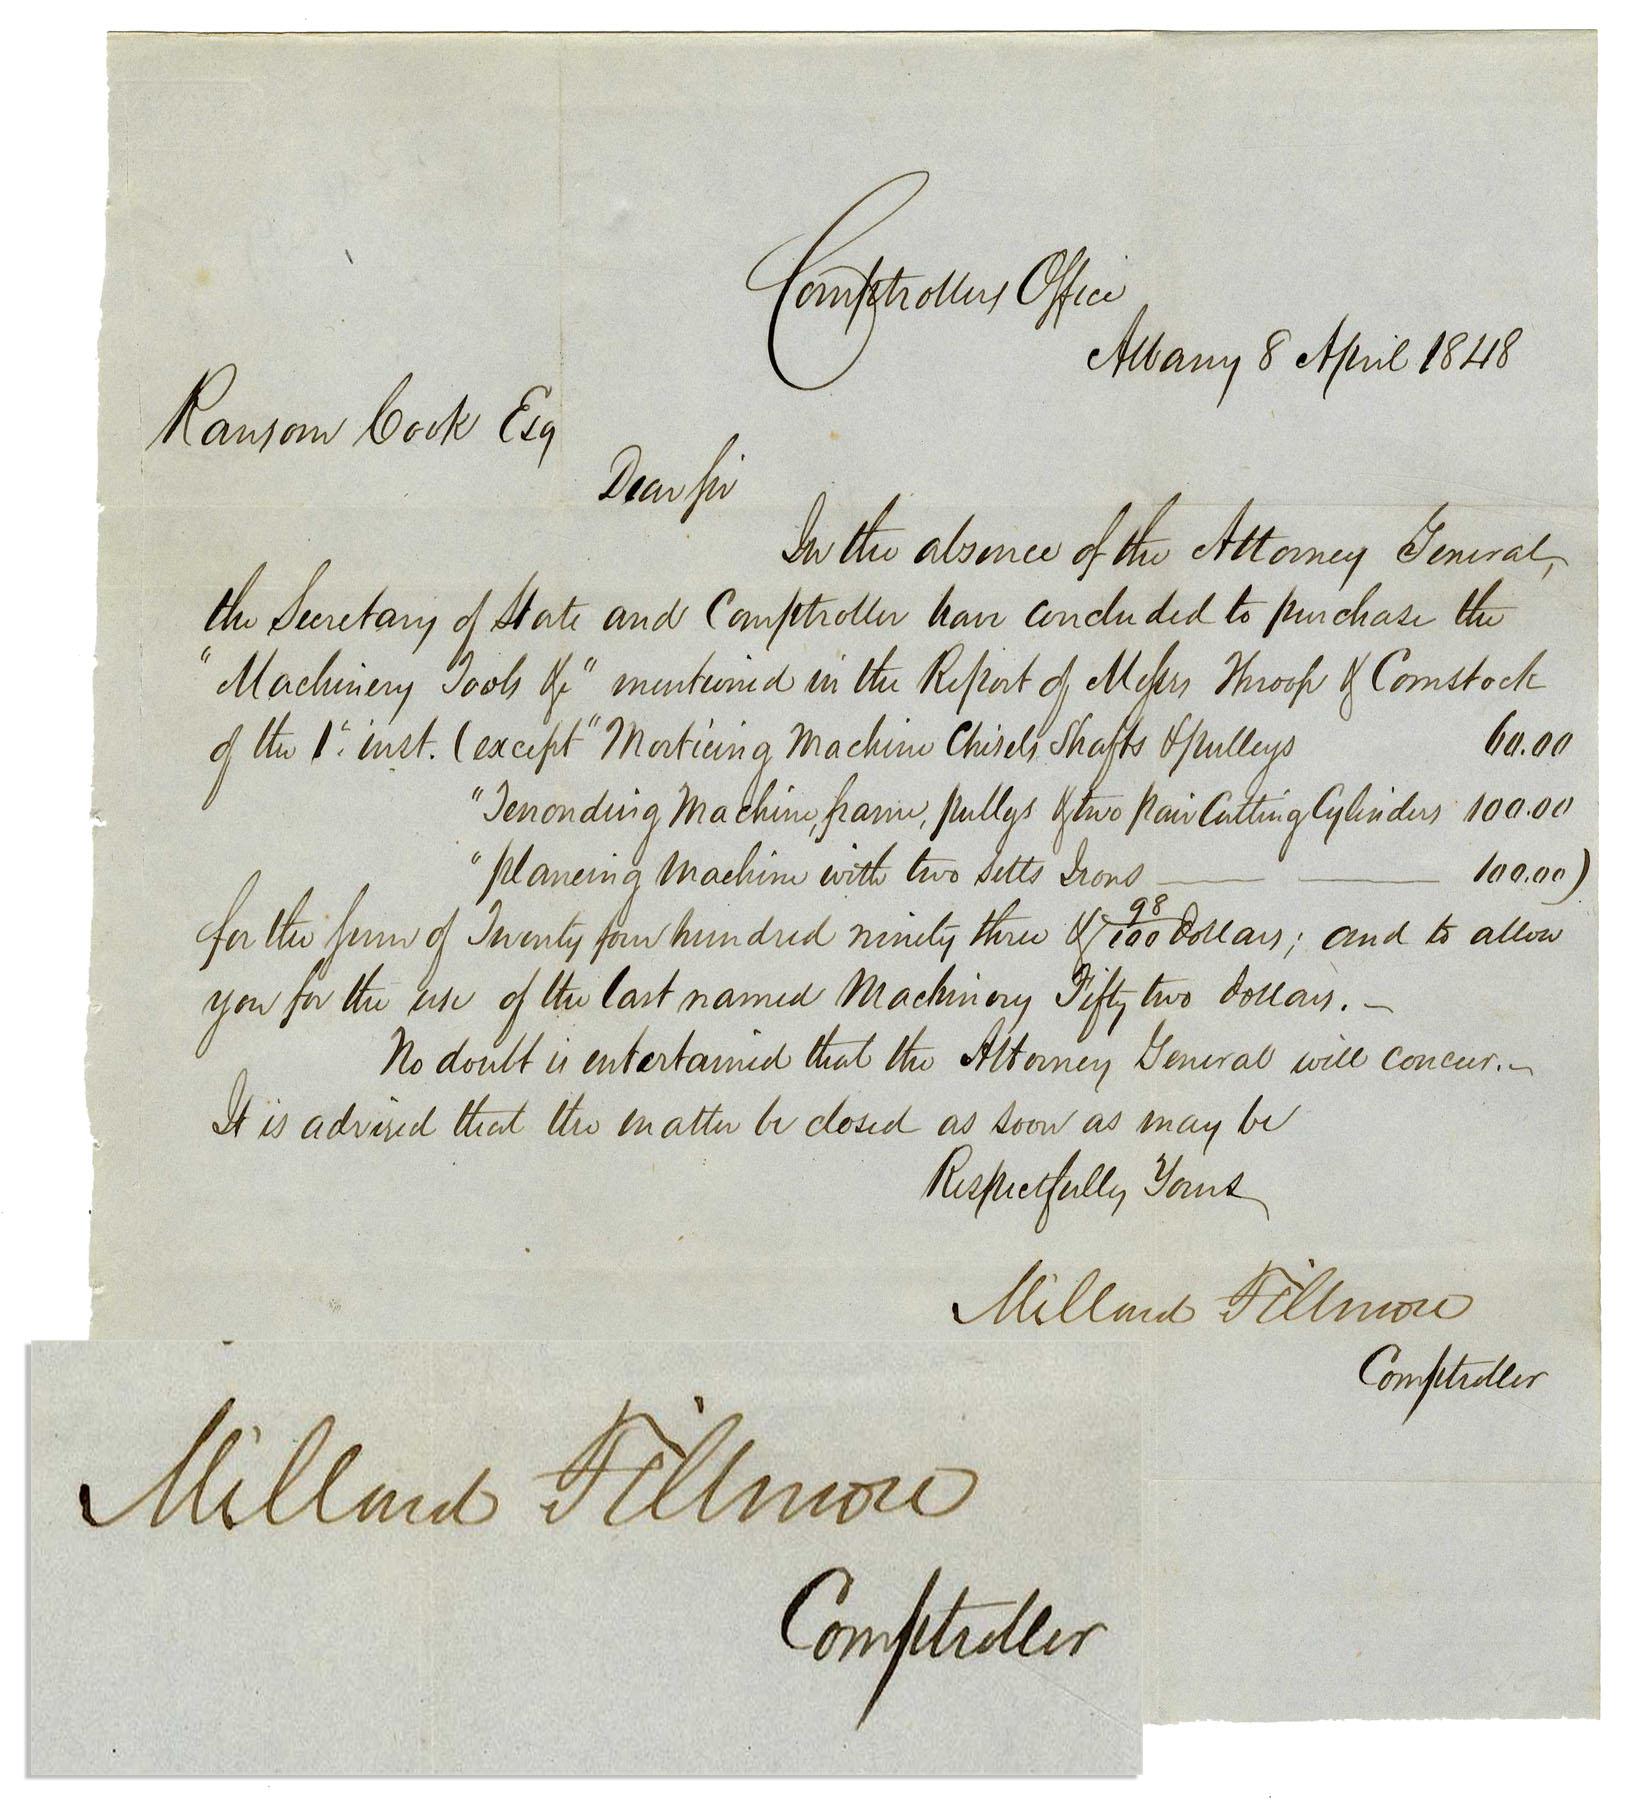 Comptrollers Office
Albany 8 April 1848
Ransom Cook Esq
Dear Sir
In the absence of the Attorney General,
the Secretary of State and Comptroller have concluded to purchase the
"Machinery Tools &c" mentioned in the Report of Messrs Throop & Comstock
of the 1st. inst. (except "Morticing Machine Chisels Shafts & pulleys 60.00
"Tenonding Machine, frame, pullys & two pair Cutting Cylinders 100.00
"planeing Machine with two setts Irons — — 100.00)
for the sum of Twenty four hundred ninety three & 98/100 Dollars; and to allow
you for the use of the last named Machinery Fifty two dollars. —
No doubt is entertained that the Attorney General will concur. —
It is advised that the matter be closed as soon as may be
Respectfully Yours
Millard Fillmore
Comptroller
Millard Fillmore
Comptroller